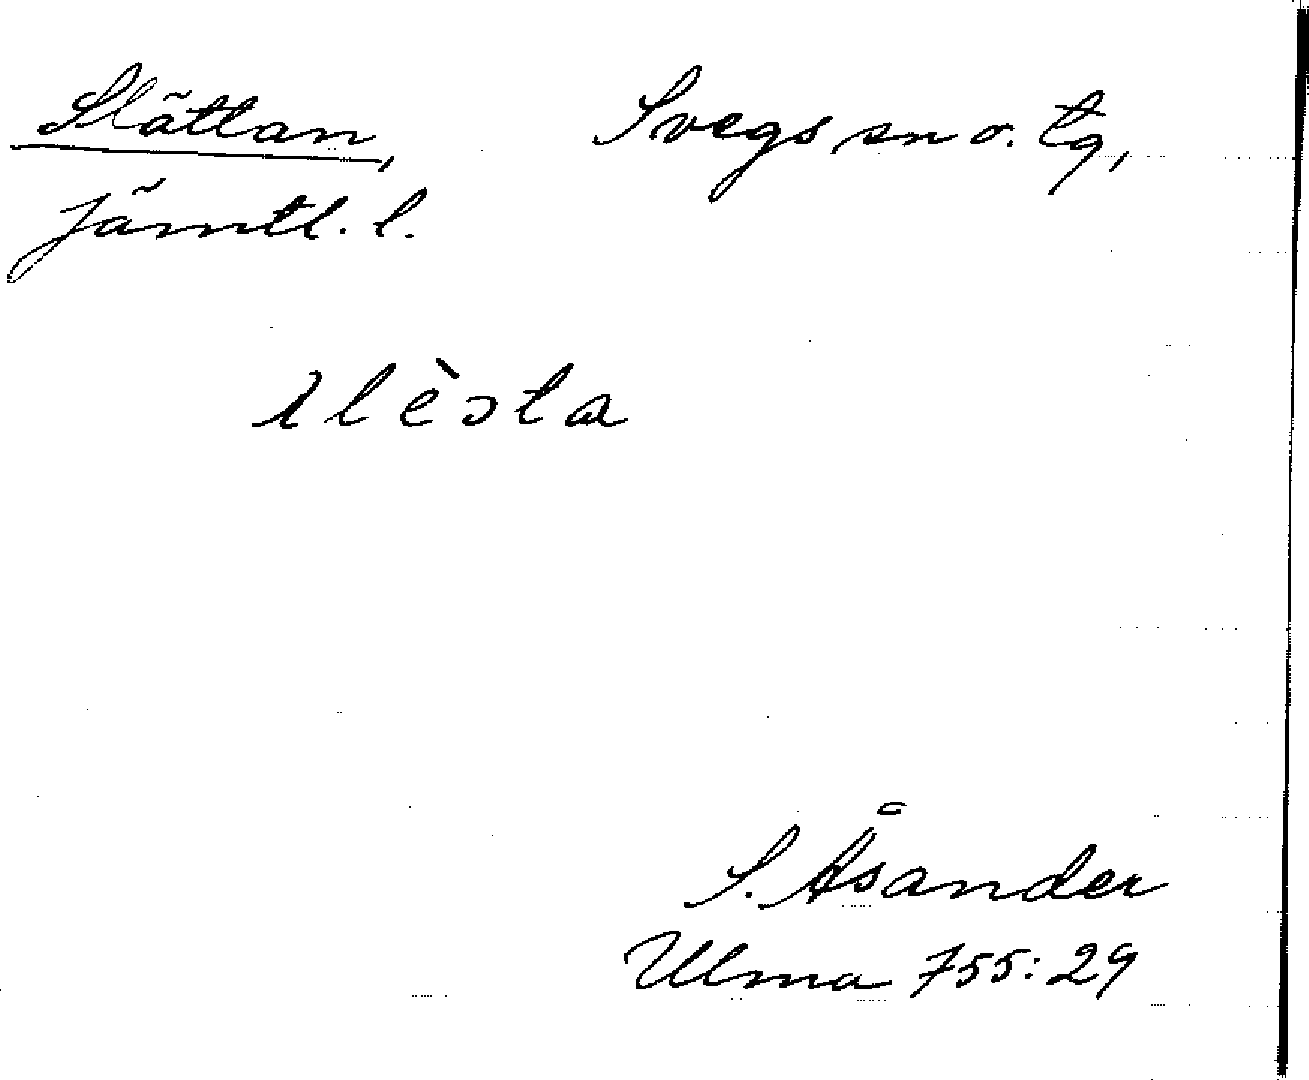 Slättan, Svegs sn o. tg,
Jämtl. l.
slèta
S. Åsander
Ulma 755:29